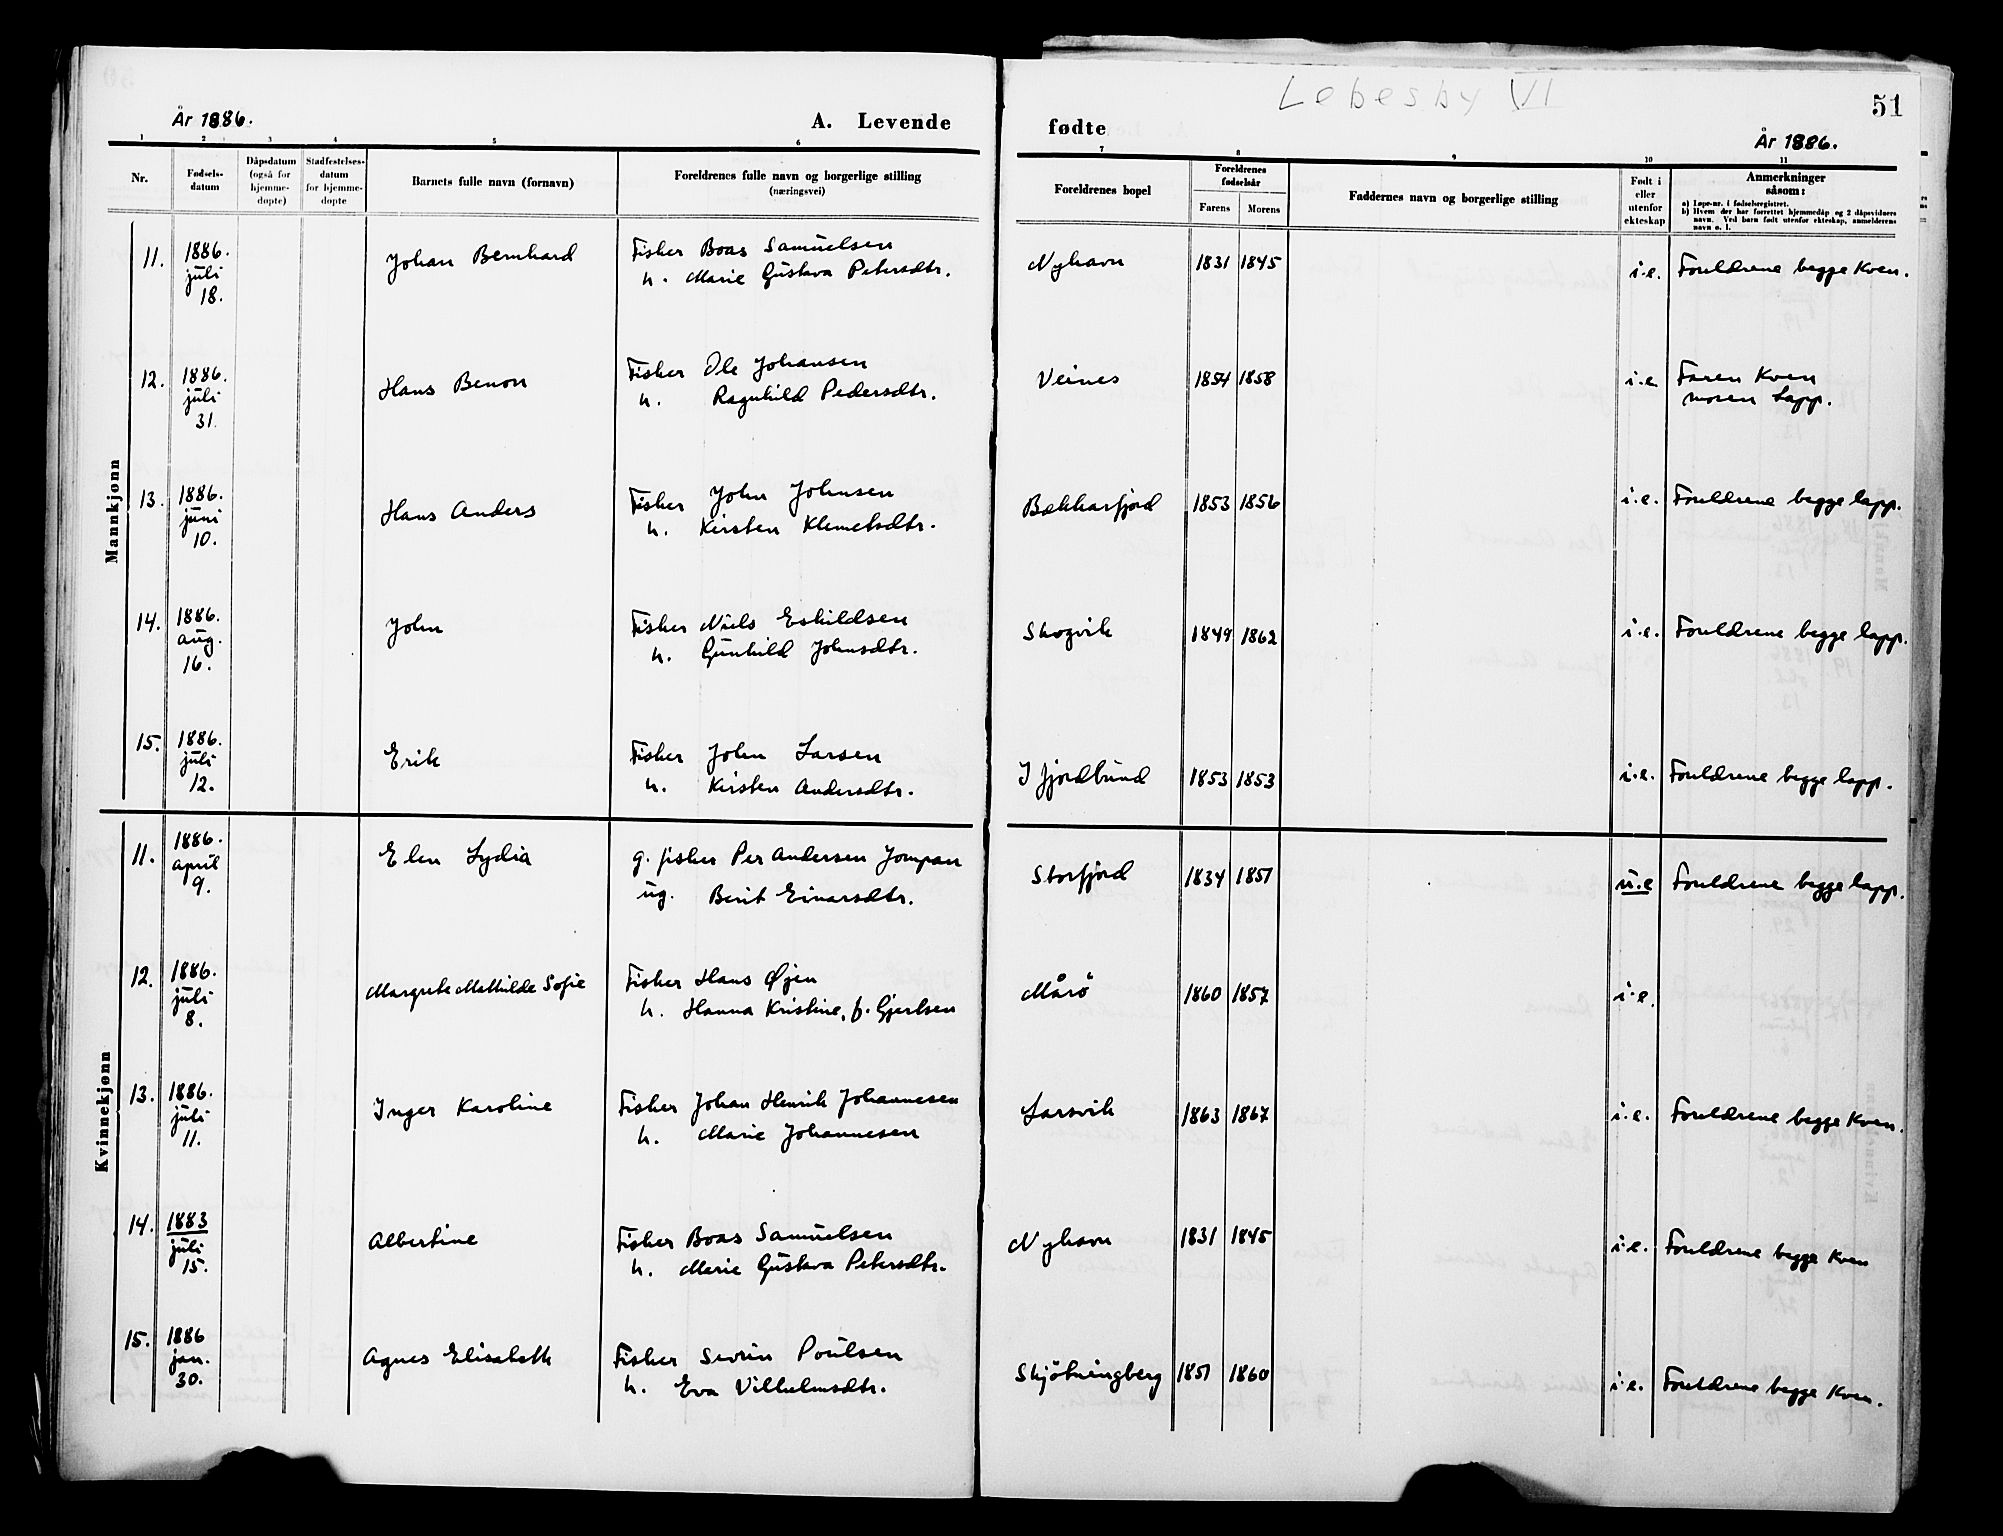 Lebesby VI
51
År 1886.
A. Levende fødte
År 1886.
1 2 3 4 5 6 7 8 9 10 11
Nr.
Fødsels-
datum
Dåpsdatum
(også for
hjemme-
døpte)
Stadfestelses-
datum
for hjemme-
døpte
Barnets fulle navn (fornavn)
Foreldrenes fulle navn og borgerlige stilling
(næringsvei)
Foreldrenes bopel
Foreldrenes
fødselsår
Farens Morens
Faddernes navn og borgerlige stilling
Født i
eller
utenfor
ekteskap
Anmerkninger
såsom:
a) Løpe-nr. i fødselsregistret.
b) Hvem der har forrettet hjemmedåp og 2 dåpsvidners
navn. Ved barn født utenfor ekteskap, anmelderens
navn o. l.
Mannkjønn
11. 1886. juli 18. Johan Bernhard Fisker Boas Samuelsen Nyhavn 1831 1845 i.e. Foreldrene begge Kven.
h. Marie Gustava Petersdtr.
12. 1886. juli 31. Hans Benon Fisker Ole Johansen Veines 1854 1858 i.e. Faren Kven
h. Ragnhild Pedersdtr. moren Lapp.
13. 1886. juni 10. Hans Anders Fisker John Johnsen Bekkarfjord 1853 1856 i.e. Foreldrene begge lapp.
h. Kirsten Klemetsdtr.
14. 1886. aug. 16. John Fisker Niels Eskildsen Skogvik 1849 1862 i.e. Foreldrene begge lapp.
h. Gunhild Johnsdtr.
15. 1886. juli 12. Erik Fisker John Larsen Ifjordbund 1853 1853 i.e. Foreldrene begge lapp.
h. Kirsten Andersdtr.
Kvinnekjønn
11. 1886. april 9. Elen Lydia g. fisker Per Andersen Jompan Storfjord 1834 1851 u.e Foreldrene begge lapp.
ug. Berit Einarsdtr.
12. 1886. juli 8. Margrete Mathilde Sofie Fisker Hans Øjen Mårø 1860 1857 i.e.
h. Hanna Kristine, f. Gjertsen
13. 1886. juli 11. Inger Karoline Fisker Johan Henrik Johannesen Larsvik 1863 1867 i.e. Foreldrene begge Kven.
h. Marie Johannesen
14. 1883 juli 15. Albertine Fisker Boas Samuelsen Nyhavn 1831 1845 i.e. Foreldrene begge Kven
h. Marie Gustava Petersdtr.
15. 1886 jan. 30. Agnes Elisabeth Fisker Sevrin Poulsen Skjøtningberg 1851 1860 i.e. Foreldrene begge Kven.
h. Eva Vilhelmsdtr.